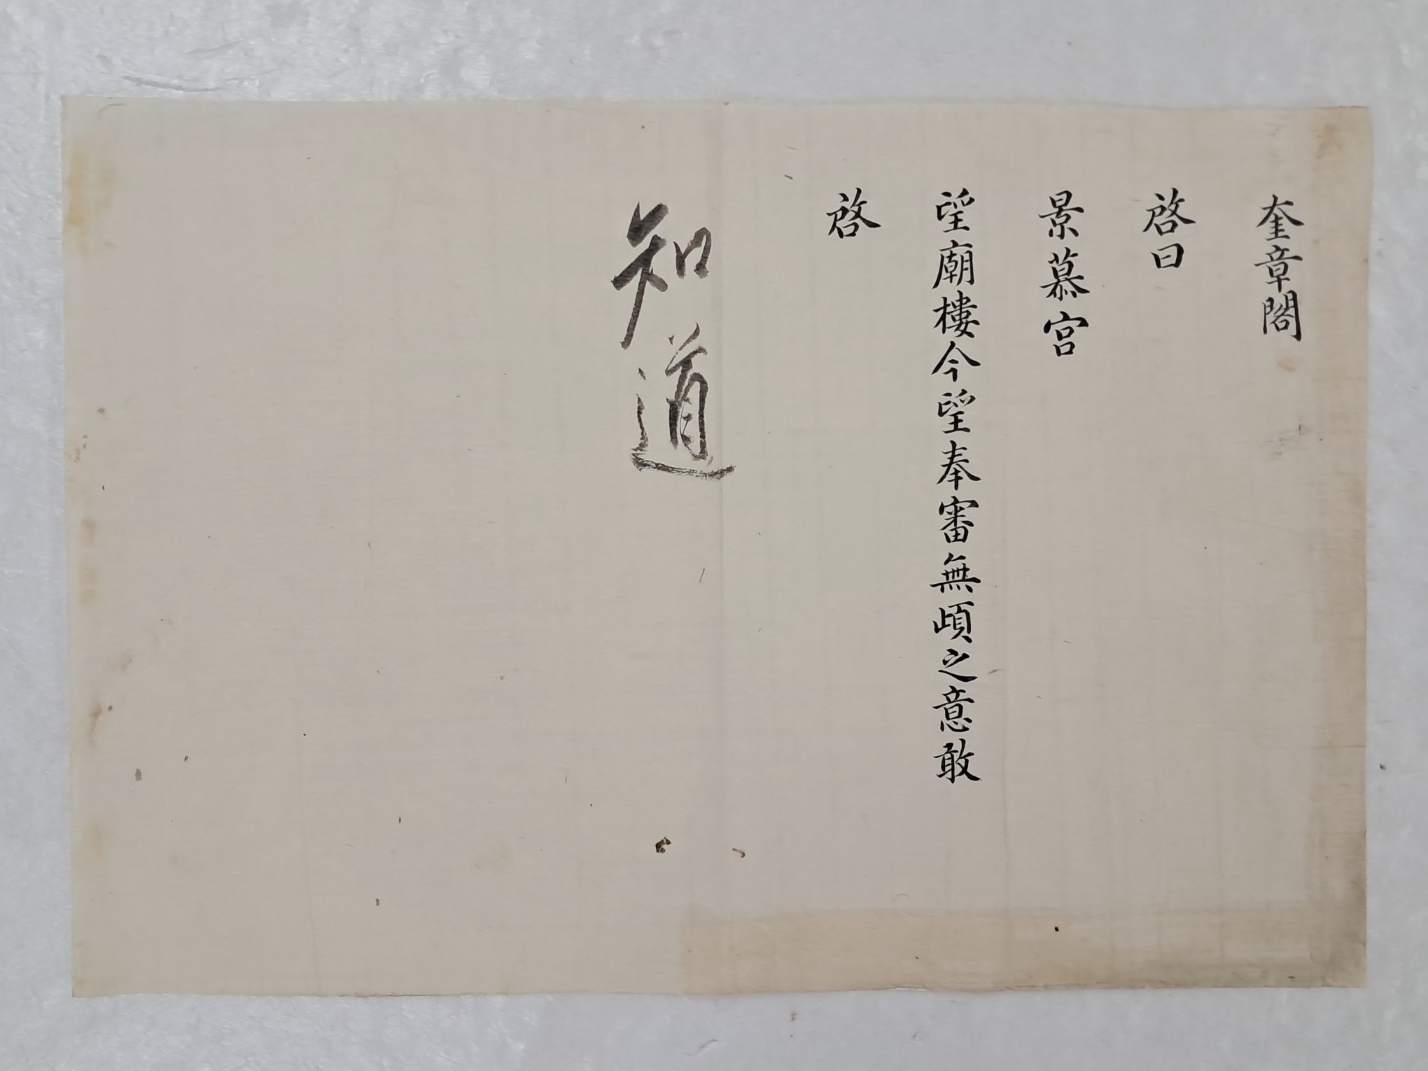 奎章閣
啓曰
景慕宮
望廟樓今望奉審無頉之意敢
啓
知道